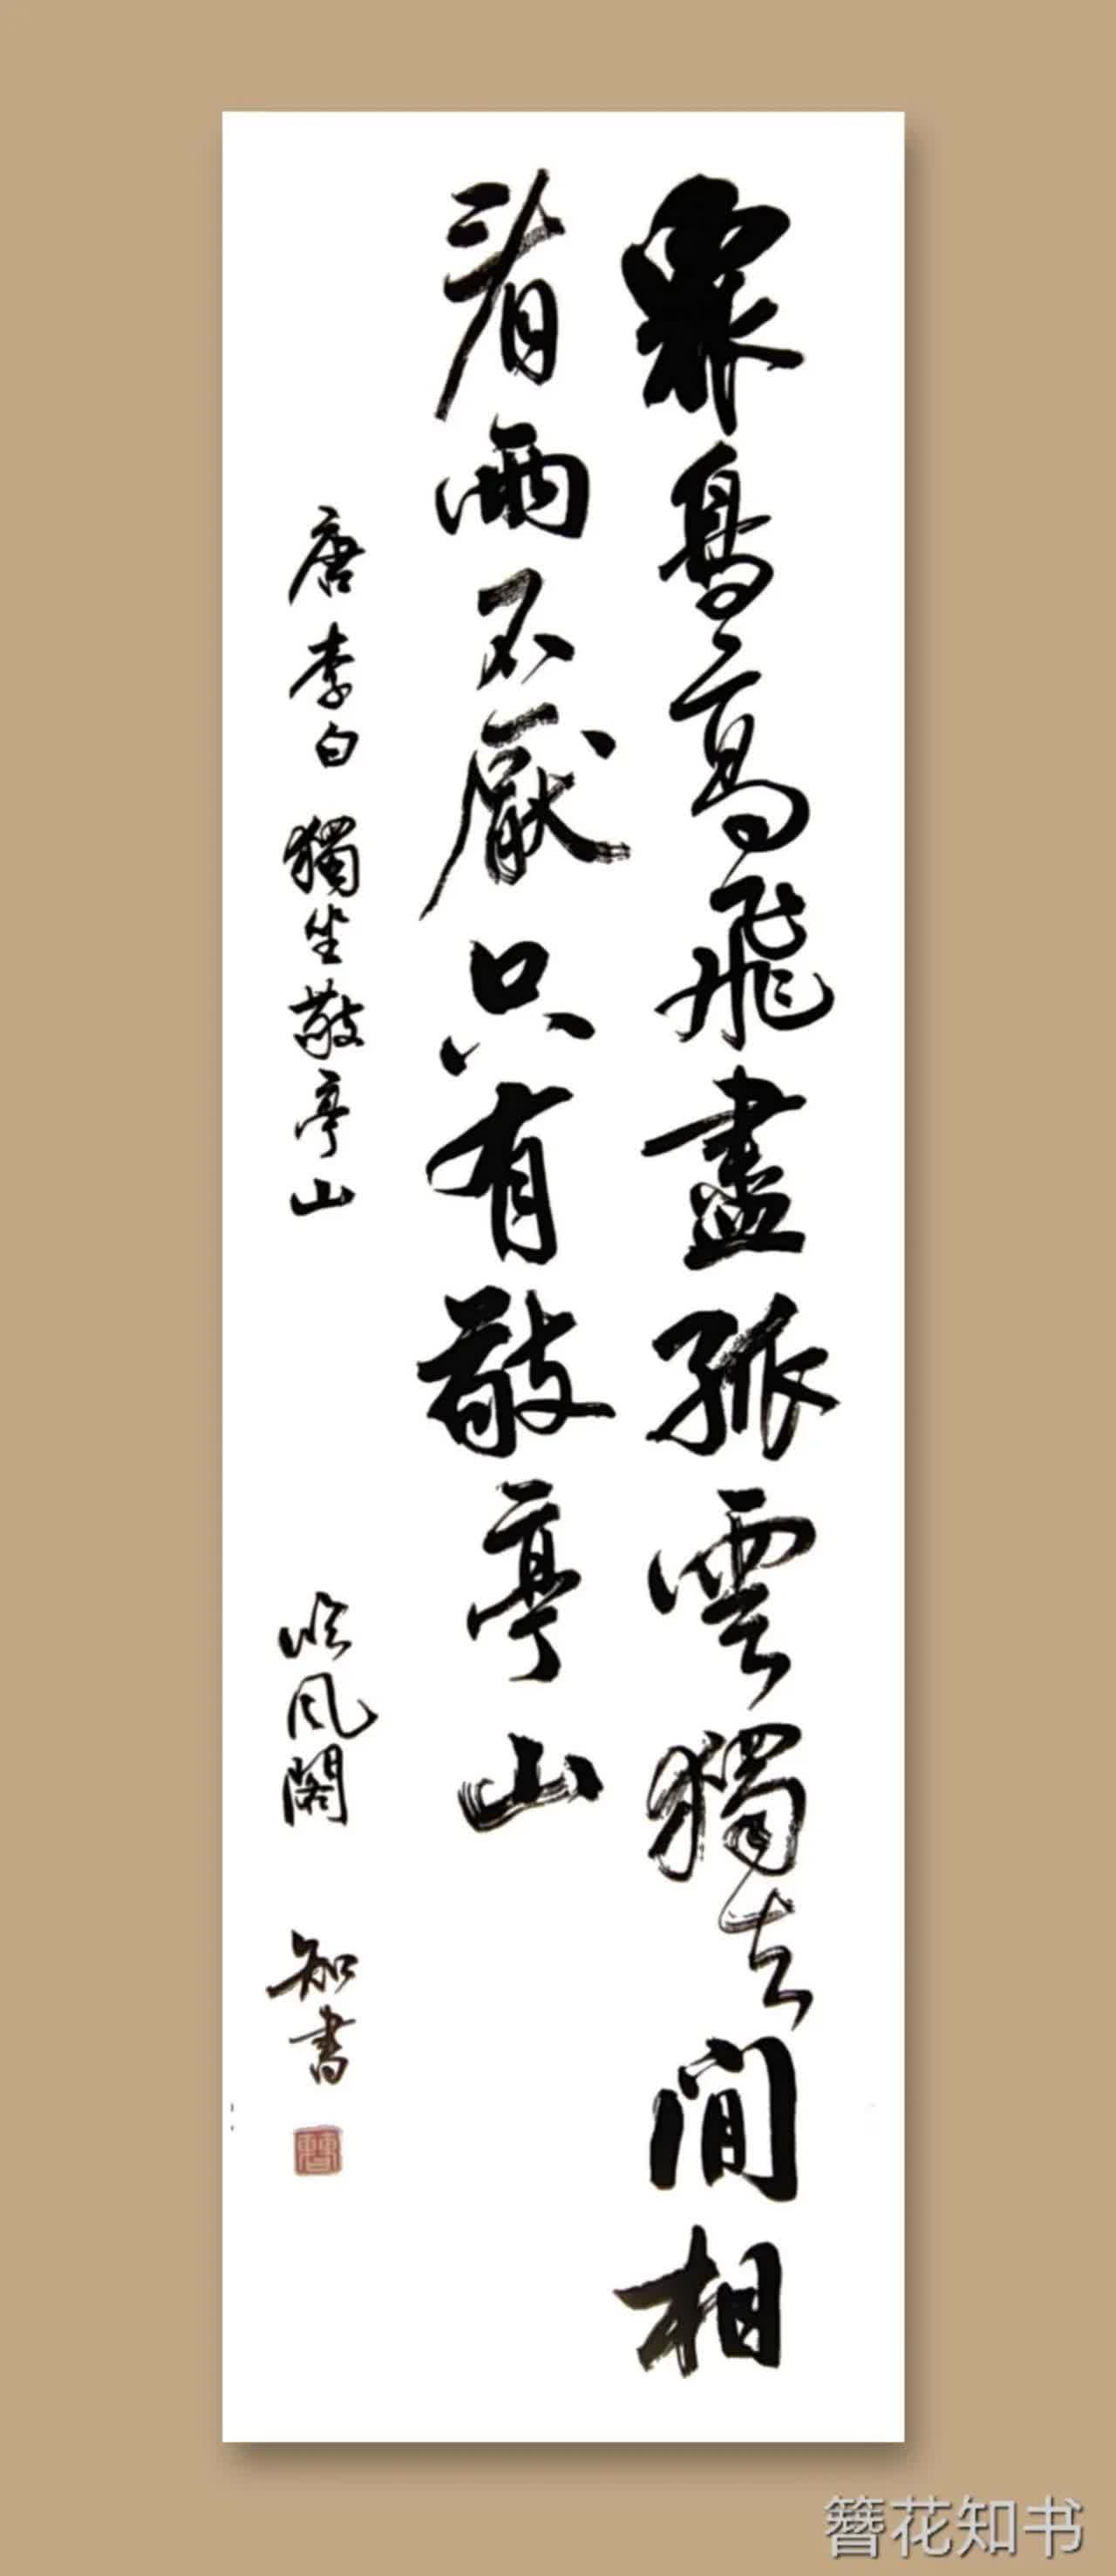 眾鳥高飛盡孤雲獨去閒相
看兩不厭只有敬亭山
唐李白 獨坐敬亭山
吟风閣 知書
簪花知书